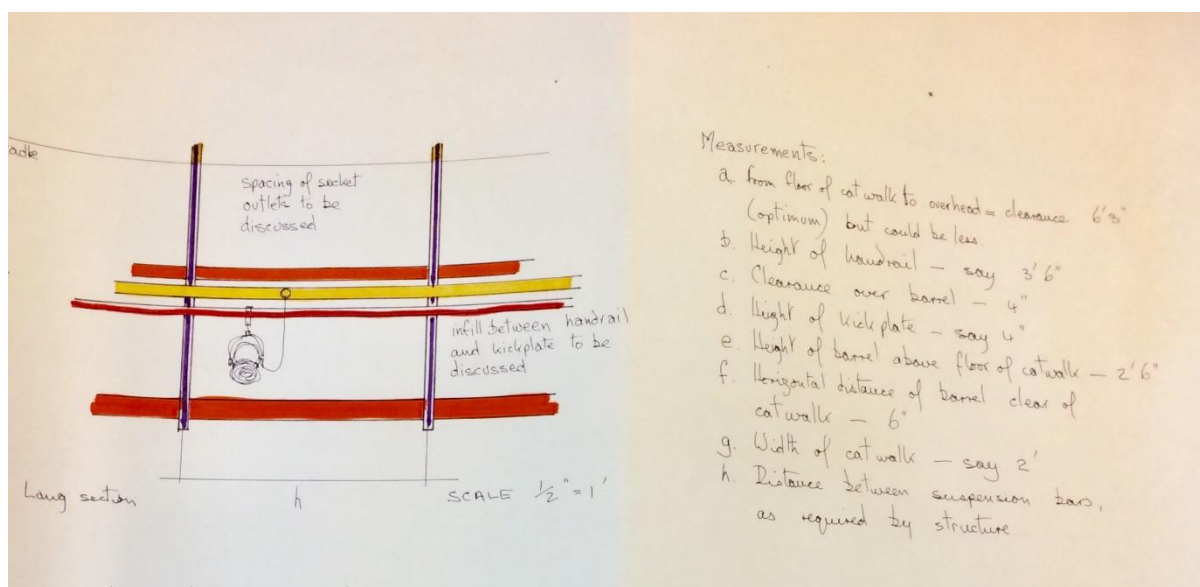 adle
spacing of socket
outlets to be
discussed
infill between handrail
and kickplate to be
discussed
Long section
h
SCALE 1/2" = 1'
Measurements:
a. from floor of catwalk to overhead = clearance 6'3"
(optimum) but could be less.
b. Height of handrail – say 3'6"
c. Clearance over barrel – 4"
d. Height of kickplate – say 4"
e. Height of barrel above floor of catwalk – 2'6"
f. Horizontal distance of barrel clear of
catwalk – 6"
g. Width of catwalk – say 2'
h. Distance between suspension bars,
as required by structure